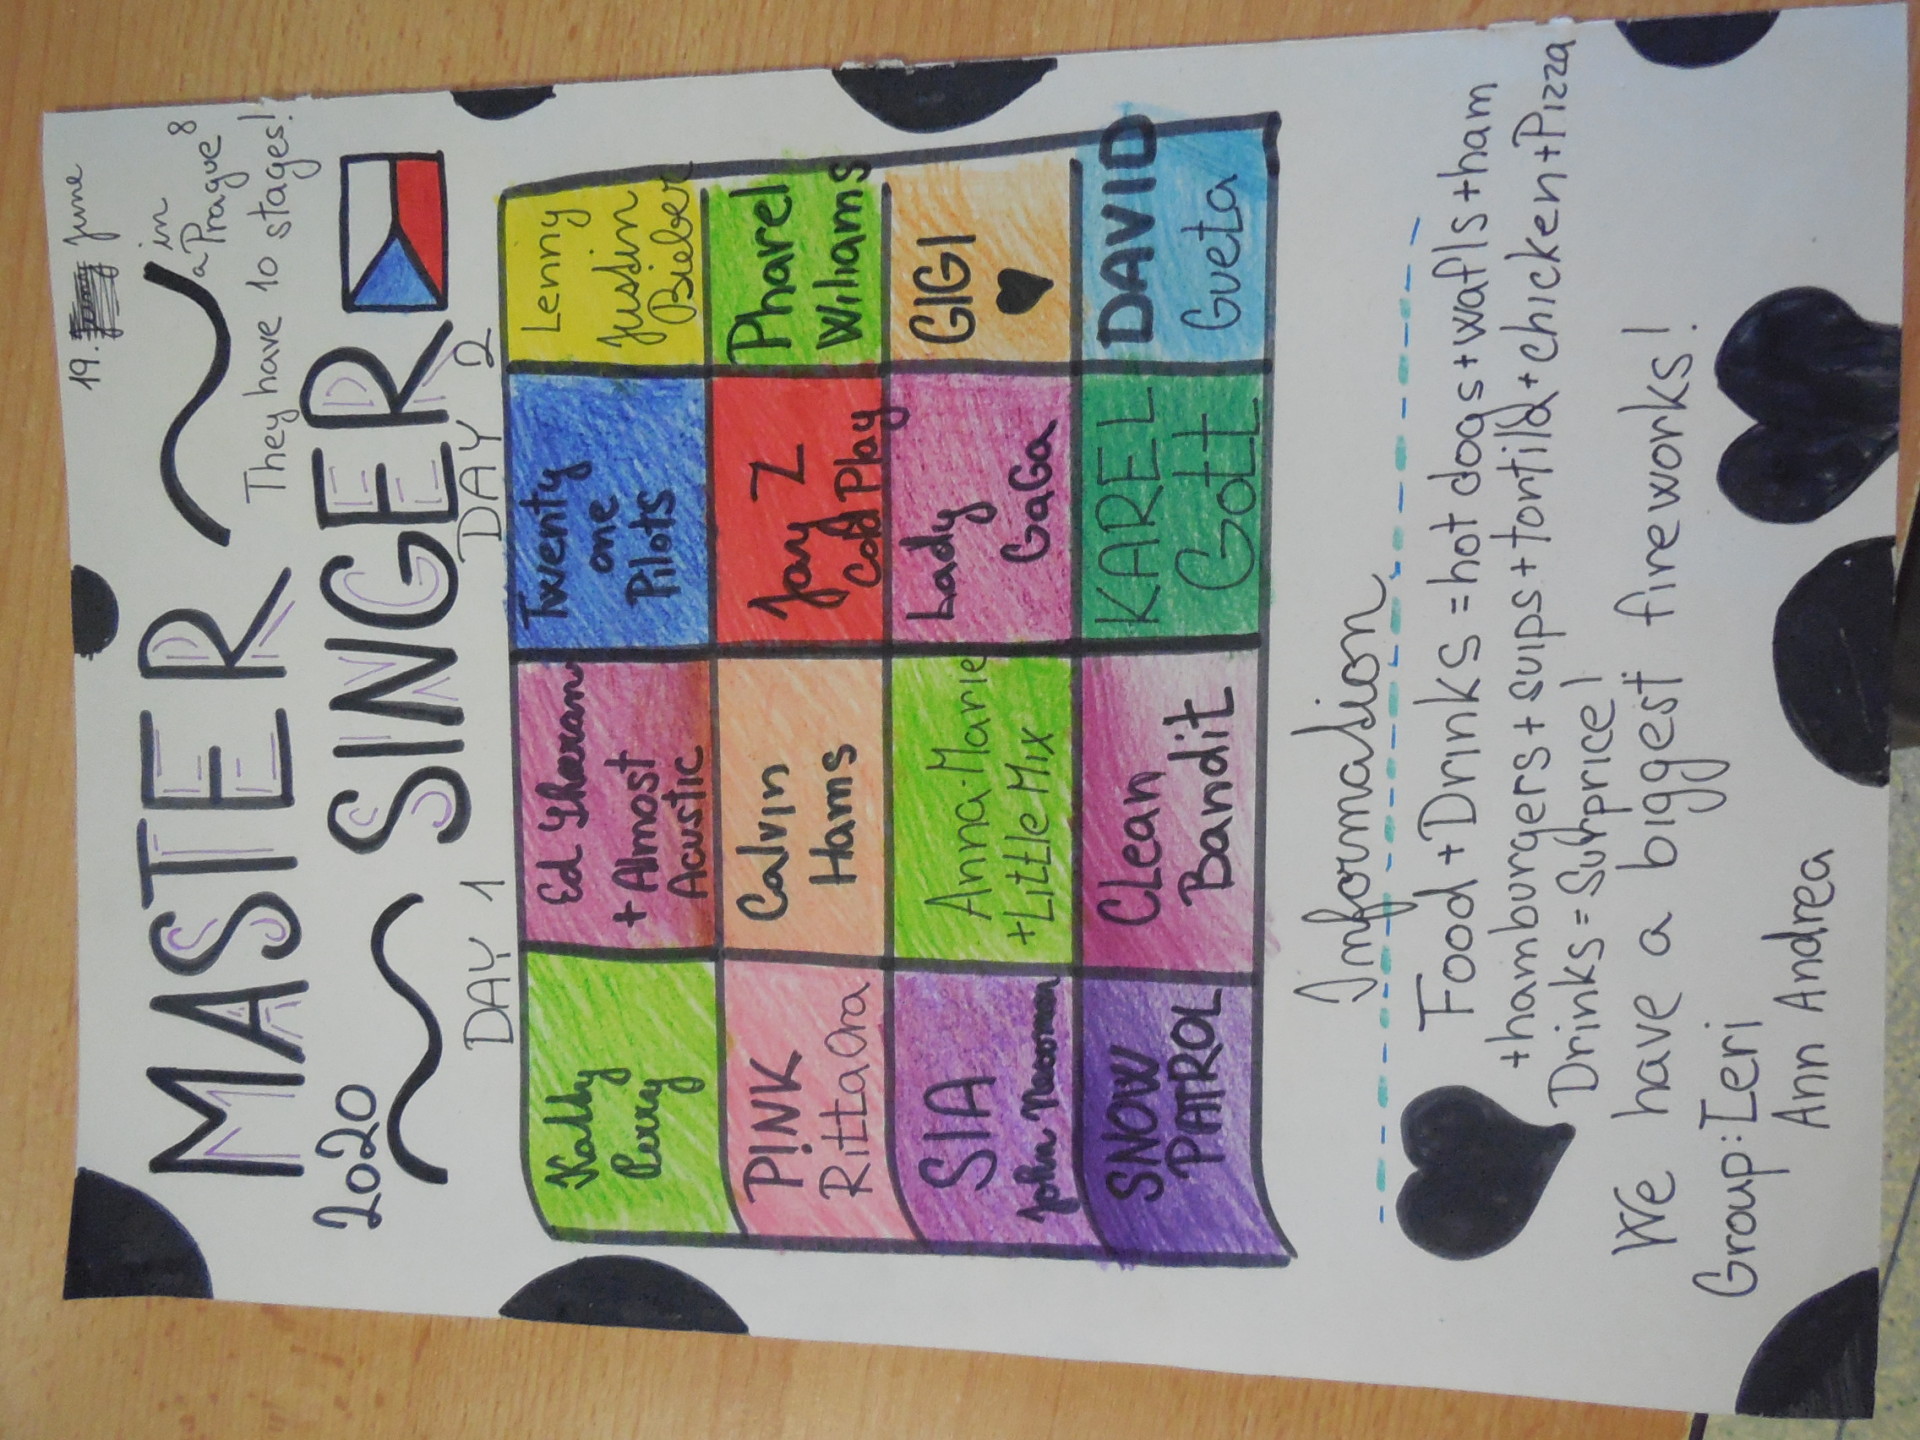 19. June
in
a Prague 8
They have 10 stages!
MASTER
2020
SINGER
DAY 1
DAY 2
Katty
Perry
Ed Sheeran
+ Almost
Acustic
Twenty
one
Pilots
Lenny
Justin
Bieber
P!NK
Ritta Ora
Calvin
Harris
Jay Z
Cold Play
Pharel
Wiliams
SIA
John Newman
Anna-Marie
+Little Mix
Lady
GaGa
GIGI
SNOW
PATROL
CLean
Bandit
KAREL
Gott
DAVID
Gueta
Information
Food+Drinks=hot dogs+wafls+ham
+hamburgers+sups+tortila+chicken+Pizza
Drinks=Surprice!
We have a biggest fireworks!
Group: Teri
Ann Andrea